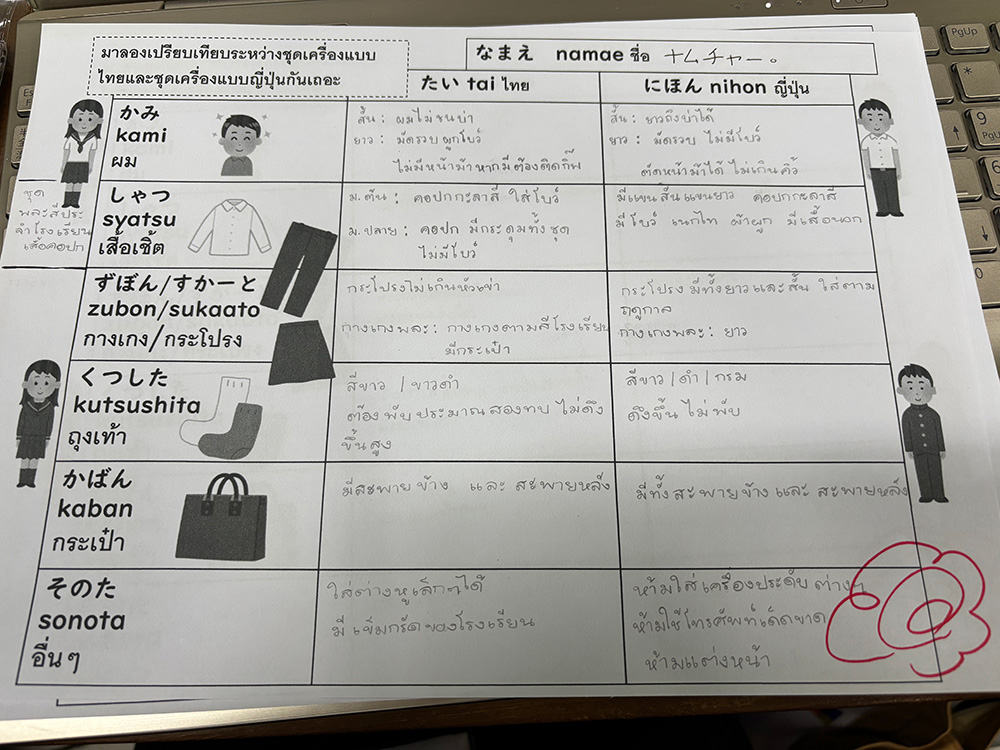 มาลองเปรียบเทียบระหว่างชุดเครื่องแบบ
ไทยและชุดเครื่องแบบญี่ปุ่นกันเถอะ
なまえ namae ชื่อ ナムチャー。
たい tai ไทย
にほん nihon ญี่ปุ่น
かみ
kami
ผม
สั้น : ผมไม่ชนบ่า
ยาว : มัดรวบ ผูกโบว์
ไม่มีหน้าม้า หากมีต้องติดกิ๊ฟ
สั้น : ยาวถึงบ่าได้
ยาว : มัดรวบ ไม่มีโบว์
ตัดหน้าม้าได้ ไม่เกินคิ้ว
ชุด
พละสีประ
จำโรงเรียน
เสื้อคอปก
しゃつ
syatsu
เสื้อเชิ้ต
ม.ต้น : คอปกกะลาสี ใส่โบว์
ม.ปลาย : คอปก มีกระดุมทั้งชุด
ไม่มีโบว์
มีแขนสั้นแขนยาว คอปกกะลาสี
มีโบว์ เนกไท ผ้าผูก มีเสื้อนอก
ずぼん/すかーと
zubon/sukaato
กางเกง/กระโปรง
กระโปรงไม่เกินหัวเข่า
กางเกงพละ : กางเกงตามสีโรงเรียน
มีกระเป๋า
กระโปรง มีทั้งยาวและสั้น ใส่ตาม
ฤดูกาล
กางเกงพละ : ยาว
くつした
kutsushita
ถุงเท้า
สีขาว / ขาวดำ
ต้อง พับ ประมาณ สองทบ ไม่ดึง
ขึ้นสูง
สีขาว / ดำ / กรม
ดึงขึ้น ไม่ พับ
かばん
kaban
กระเป๋า
มีสะพายข้าง และ สะพายหลัง
มีทั้ง สะพายข้าง และ สะพายหลัง
そのた
sonota
อื่นๆ
ใส่ต่างหูเล็กๆได้
มี เข็มกรัดของโรงเรียน
ห้ามใส่เครื่องประดับ ต่างๆ
ห้ามใช้โทรศัพท์เด็ดขาด
ห้ามแต่งหน้า
PgUp
PgUp
9